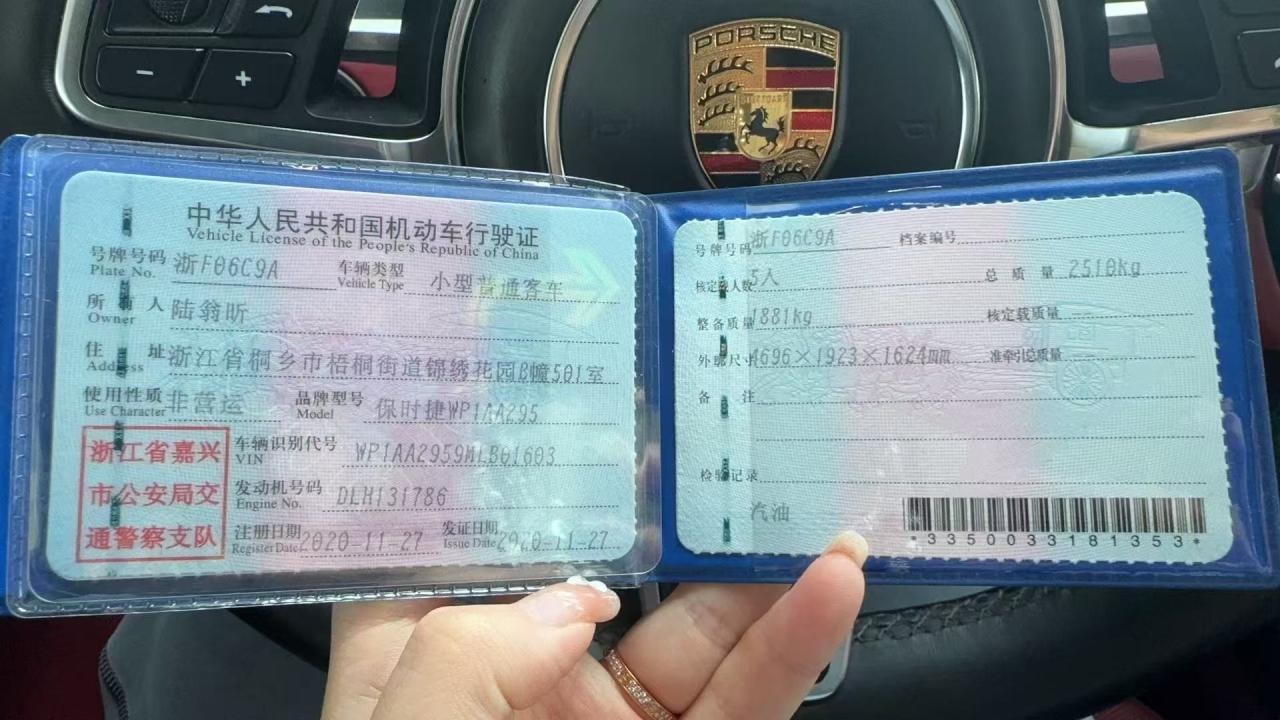 PORSCHE
中华人民共和国机动车行驶证
Vehicle License of the People's Republic of China
号牌号码 浙F06C9A 车辆类型 小型普通客车
Plate No. Vehicle Type
所有人 陆翁昕
Owner
住址 浙江省桐乡市梧桐街道锦绣花园B幢501室
Address
使用性质 非营运 品牌型号 保时捷WP1AA295
Use Character Model
浙江省嘉兴
市公安局交
通警察支队
车辆识别代号 WP1AA2959MLB01603
VIN
发动机号码 DLH131786
Engine No.
注册日期 2020-11-27 发证日期 2020-11-27
Register Date Issue Date
号牌号码 浙F06C9A 档案编号
核定载人数 5人 总质量 2510kg
整备质量 1881kg 核定载质量 --
外廓尺寸 4696×1923×1624mm 准牵引总质量 --
备注
检验记录
汽油
*3350033181353*